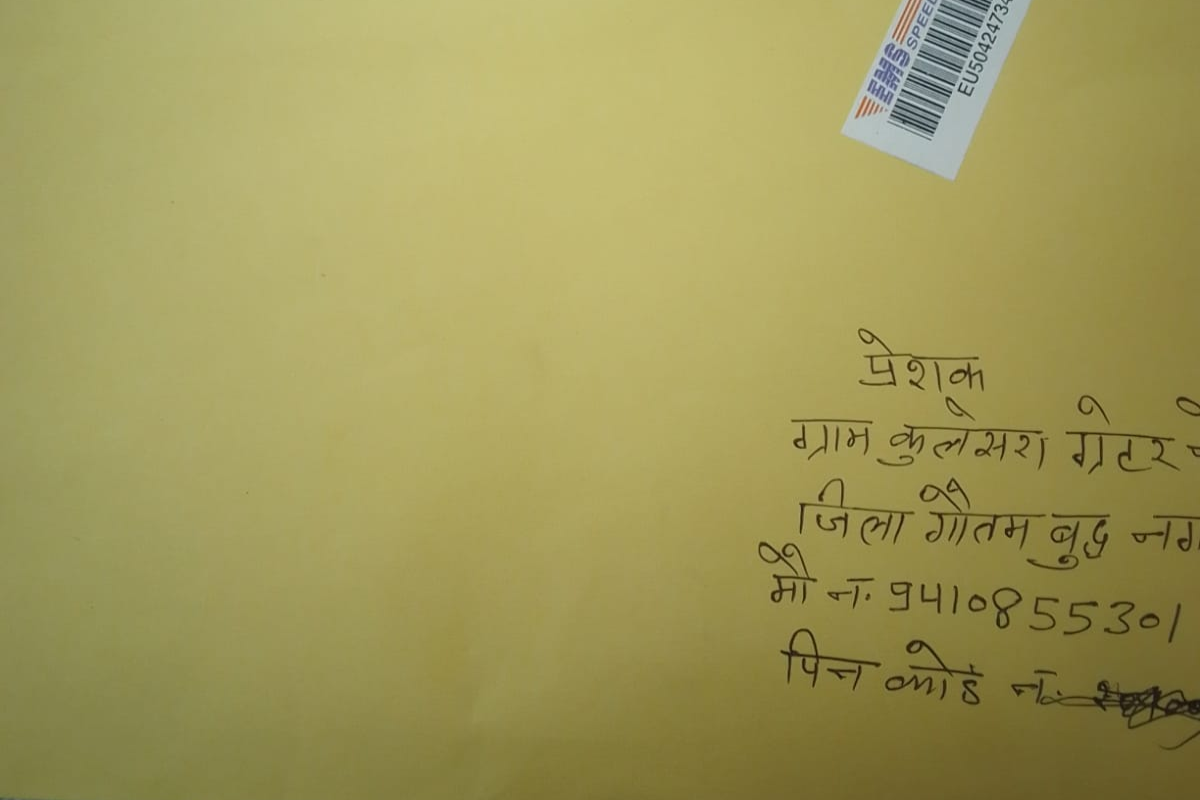 EMS SPEED
EU50424734
प्रेशक
ग्राम कुलेसरा ग्रेटर
जिला गौतम बुद्ध नग
मौ न. 9410855301
पिन कोड न.